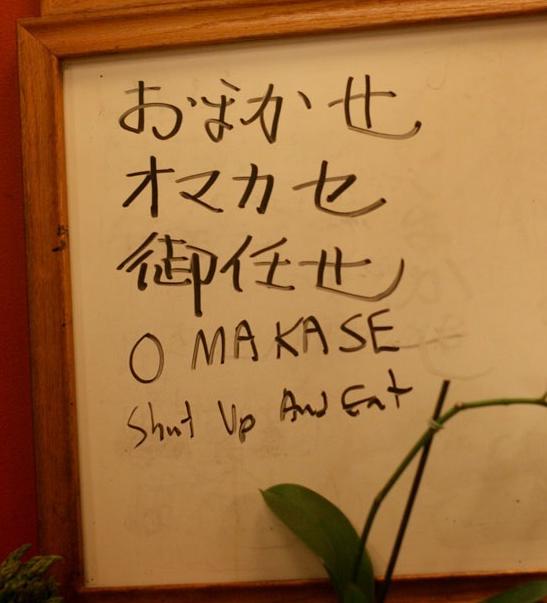 おまかせ
オマカセ
御任せ
OMAKASE
Shut Up And Eat